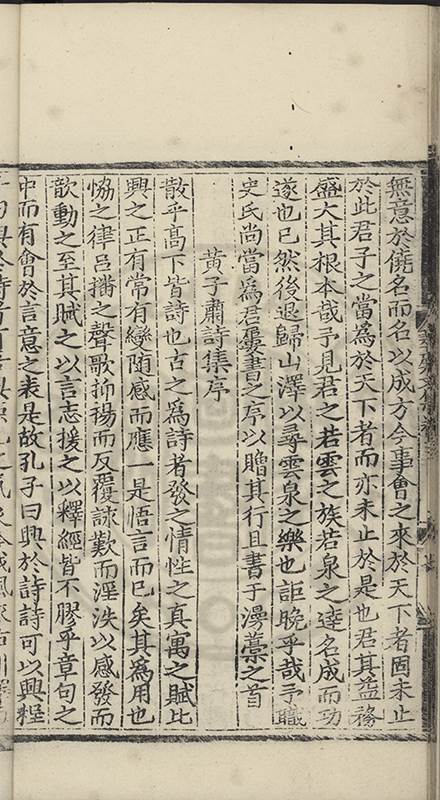 無意於僥名而名以成方今事會之來於天下者固未止
於此君子之當爲於天下者而亦未止於是也君其益務
盛大其根本哉予見君之若雲之族若泉之逹名成而功
遂也已然後退歸山澤以尋雲泉之樂也詎晚乎哉予職
史氏尚當爲君屢書之序以贈其行且書于漫藁之首
黄子肅詩集序
散乎髙下皆詩也古之爲詩者發之情性之真寓之賦比
興之正有常有變随感而應一是悟言而已矣其爲用也
恊之律呂播之聲歌抑揚而反覆詠歎而滛泆以感發而
歆動之至其賦之以言志援之以釋經皆不膠乎章句之
中而有會於言意之表是故孔子曰興於詩詩可以興程